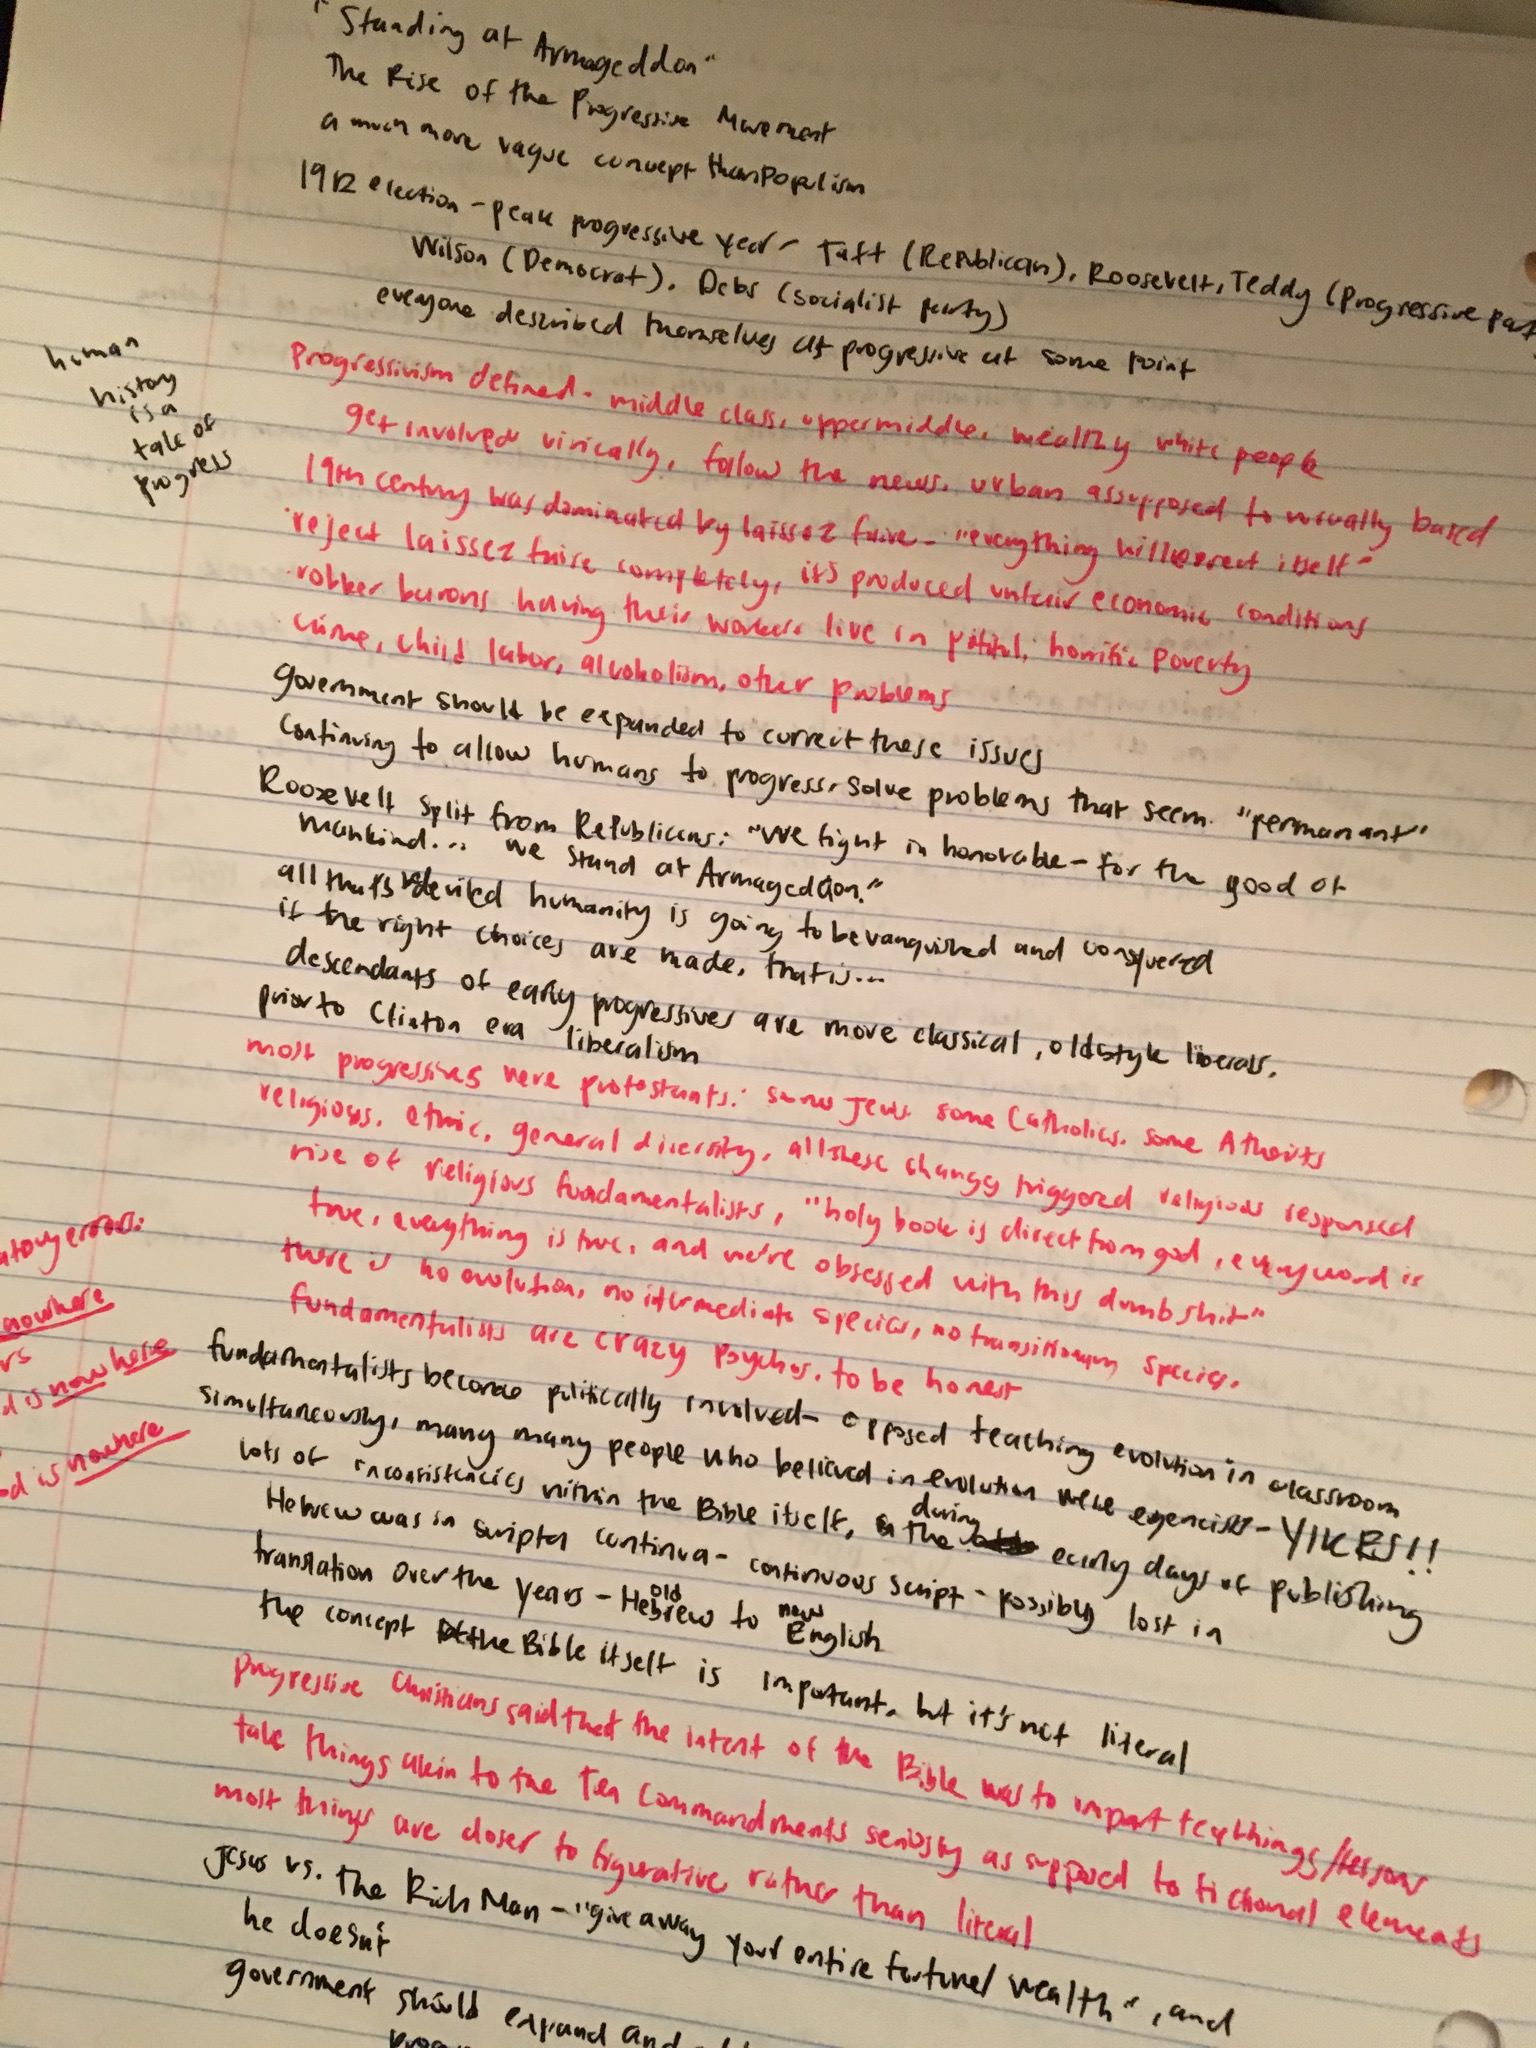 "Standing at Armageddon"
The Rise of the Progressive Movement
a much more vague concept than Populism
1912 election - peak progressive year - Taft (Republican), Roosevelt, Teddy (Progressive part
Wilson (Democrat), Debs (socialist party)
everyone described themselves as progressive at some point
human
history
is a
tale of
progress
Progressivism defined - middle class, upper middle, wealthy white people
get involved civically, follow the news, urban as supposed to rurally based
19th century was dominated by laissez faire - "everything will correct itself"
reject laissez faire completely, it's produced unfair economic conditions
robber barons having their workers live in pitiful, horrific poverty
crime, child labor, alcoholism, other problems
government should be expanded to correct these issues
continuing to allow humans to progress, solve problems that seem "permanant"
Roosevelt split from Republicans: "We fight in honorable - for the good of
mankind... we stand at Armageddon."
all that's humanity is going to be vanquished and conquered
if the right choices are made, that is...
descendants of early progressives are more classical, old style liberals,
prior to Clinton era liberalism
most progressives were protestants: some Jews some Catholics, some Atheists
religious, ethnic, general diversity, all these changes triggered religious responsed
rise of religious fundamentalists, "holy book is direct from god, every word is
true, everything is true, and we're obsessed with this dumb shit"
there is no evolution, no intermediate species, no transitionary species,
fundamentalists are crazy psychos, to be honest
nowhere
rs
d is nowhere
od is nowhere
fundamentalists become politically involved - opposed teaching evolution in classroom
simultaneously, many many people who believed in evolution were - YIKES!!
lots of inconsistencies within the Bible itself, the during early days of publishing
Hebrew was in scripta continua - continuous script - possibly lost in
translation over the years - old Hebrew to new English
the concept of the Bible itself is important, but it's not literal
progressive Christians said that the intent of the Bible was to impart teachings/lessons
take things akin to the Ten Commandments seriously as supposed to fictional elements
most things are closer to figurative rather than literal
Jesus vs. The Rich Man - "give away your entire fortune/wealth", and
he doesn't
government should expand and